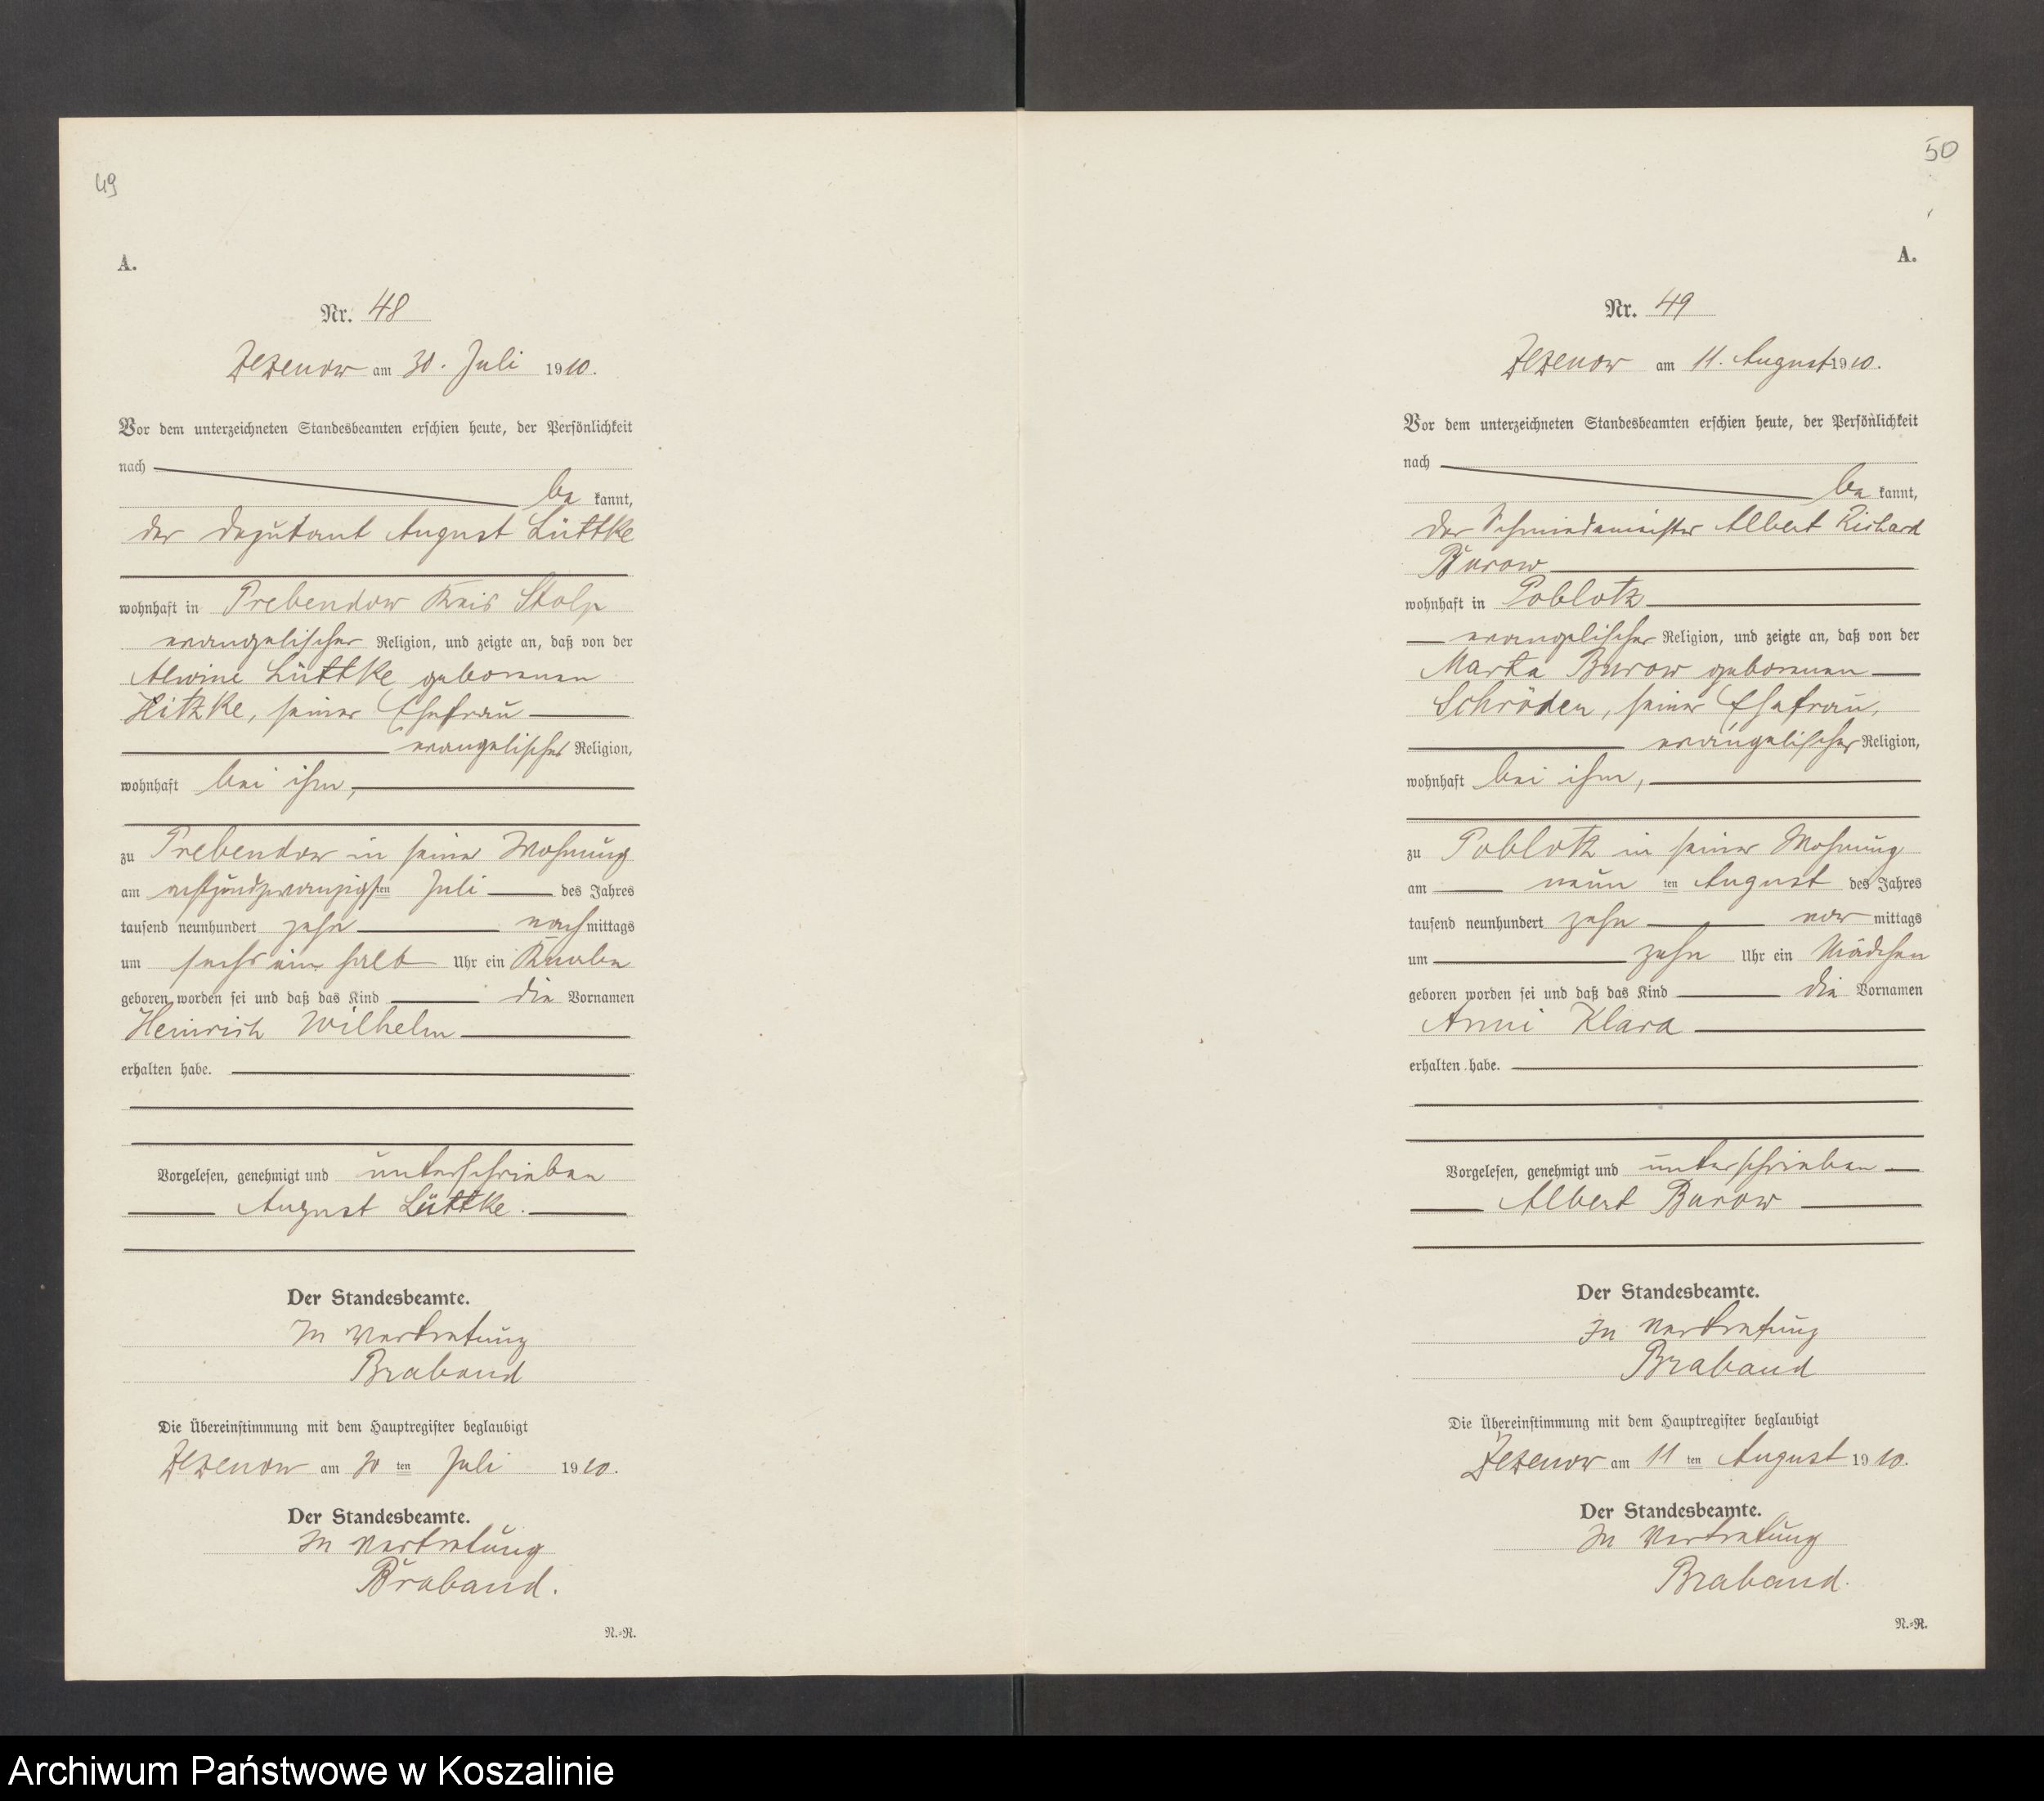 49
A.
Nr. 48
Zezenow am 30. Juli 1910.
Vor dem unterzeichneten Standesbeamten erschien heute, der Persönlichkeit
nach
be kannt,
der Deputant August Lüttke
wohnhaft in Prebendow Kreis Stolp
evangelischer Religion, und zeigte an, daß von der
Alwine Lüttke geborenen
Hitzke, seiner Ehefrau
evangelischer Religion,
wohnhaft bei ihm,
zu Prebendow in seiner Wohnung
am achtundzwanzigsten Juli des Jahres
tausend neunhundert zehn nachmittags
um sechs ein halb Uhr ein Knabe
geboren worden sei und daß das Kind die Vornamen
Heinrich Wilhelm
erhalten habe.
Vorgelesen, genehmigt und unterschrieben
August Lüttke.
Der Standesbeamte.
In Vertretung
Braband
Die Übereinstimmung mit dem Hauptregister beglaubigt
Zezenow am 30 ten Juli 1910.
Der Standesbeamte.
In Vertretung
Braband.
N.=R.
50
A.
Nr. 49
Zezenow am 11. August 1910.
Vor dem unterzeichneten Standesbeamten erschien heute, der Persönlichkeit
nach
be kannt,
der Schmiedemeister Albert Richard
Burow
wohnhaft in Poblotz
evangelischer Religion, und zeigte an, daß von der
Marta Burow geborenen
Schröder, seiner Ehefrau,
evangelischer Religion,
wohnhaft bei ihm,
zu Poblotz in seiner Wohnung
am neun ten August des Jahres
tausend neunhundert zehn vor mittags
um zehn Uhr ein Mädchen
geboren worden sei und daß das Kind die Vornamen
Anni Klara
erhalten habe.
Vorgelesen, genehmigt und unterschrieben
Albert Burow
Der Standesbeamte.
In Vertretung
Braband
Die Übereinstimmung mit dem Hauptregister beglaubigt
Zezenow am 11 ten August 1910.
Der Standesbeamte.
In Vertretung
Braband.
N.=R.
Archiwum Państwowe w Koszalinie